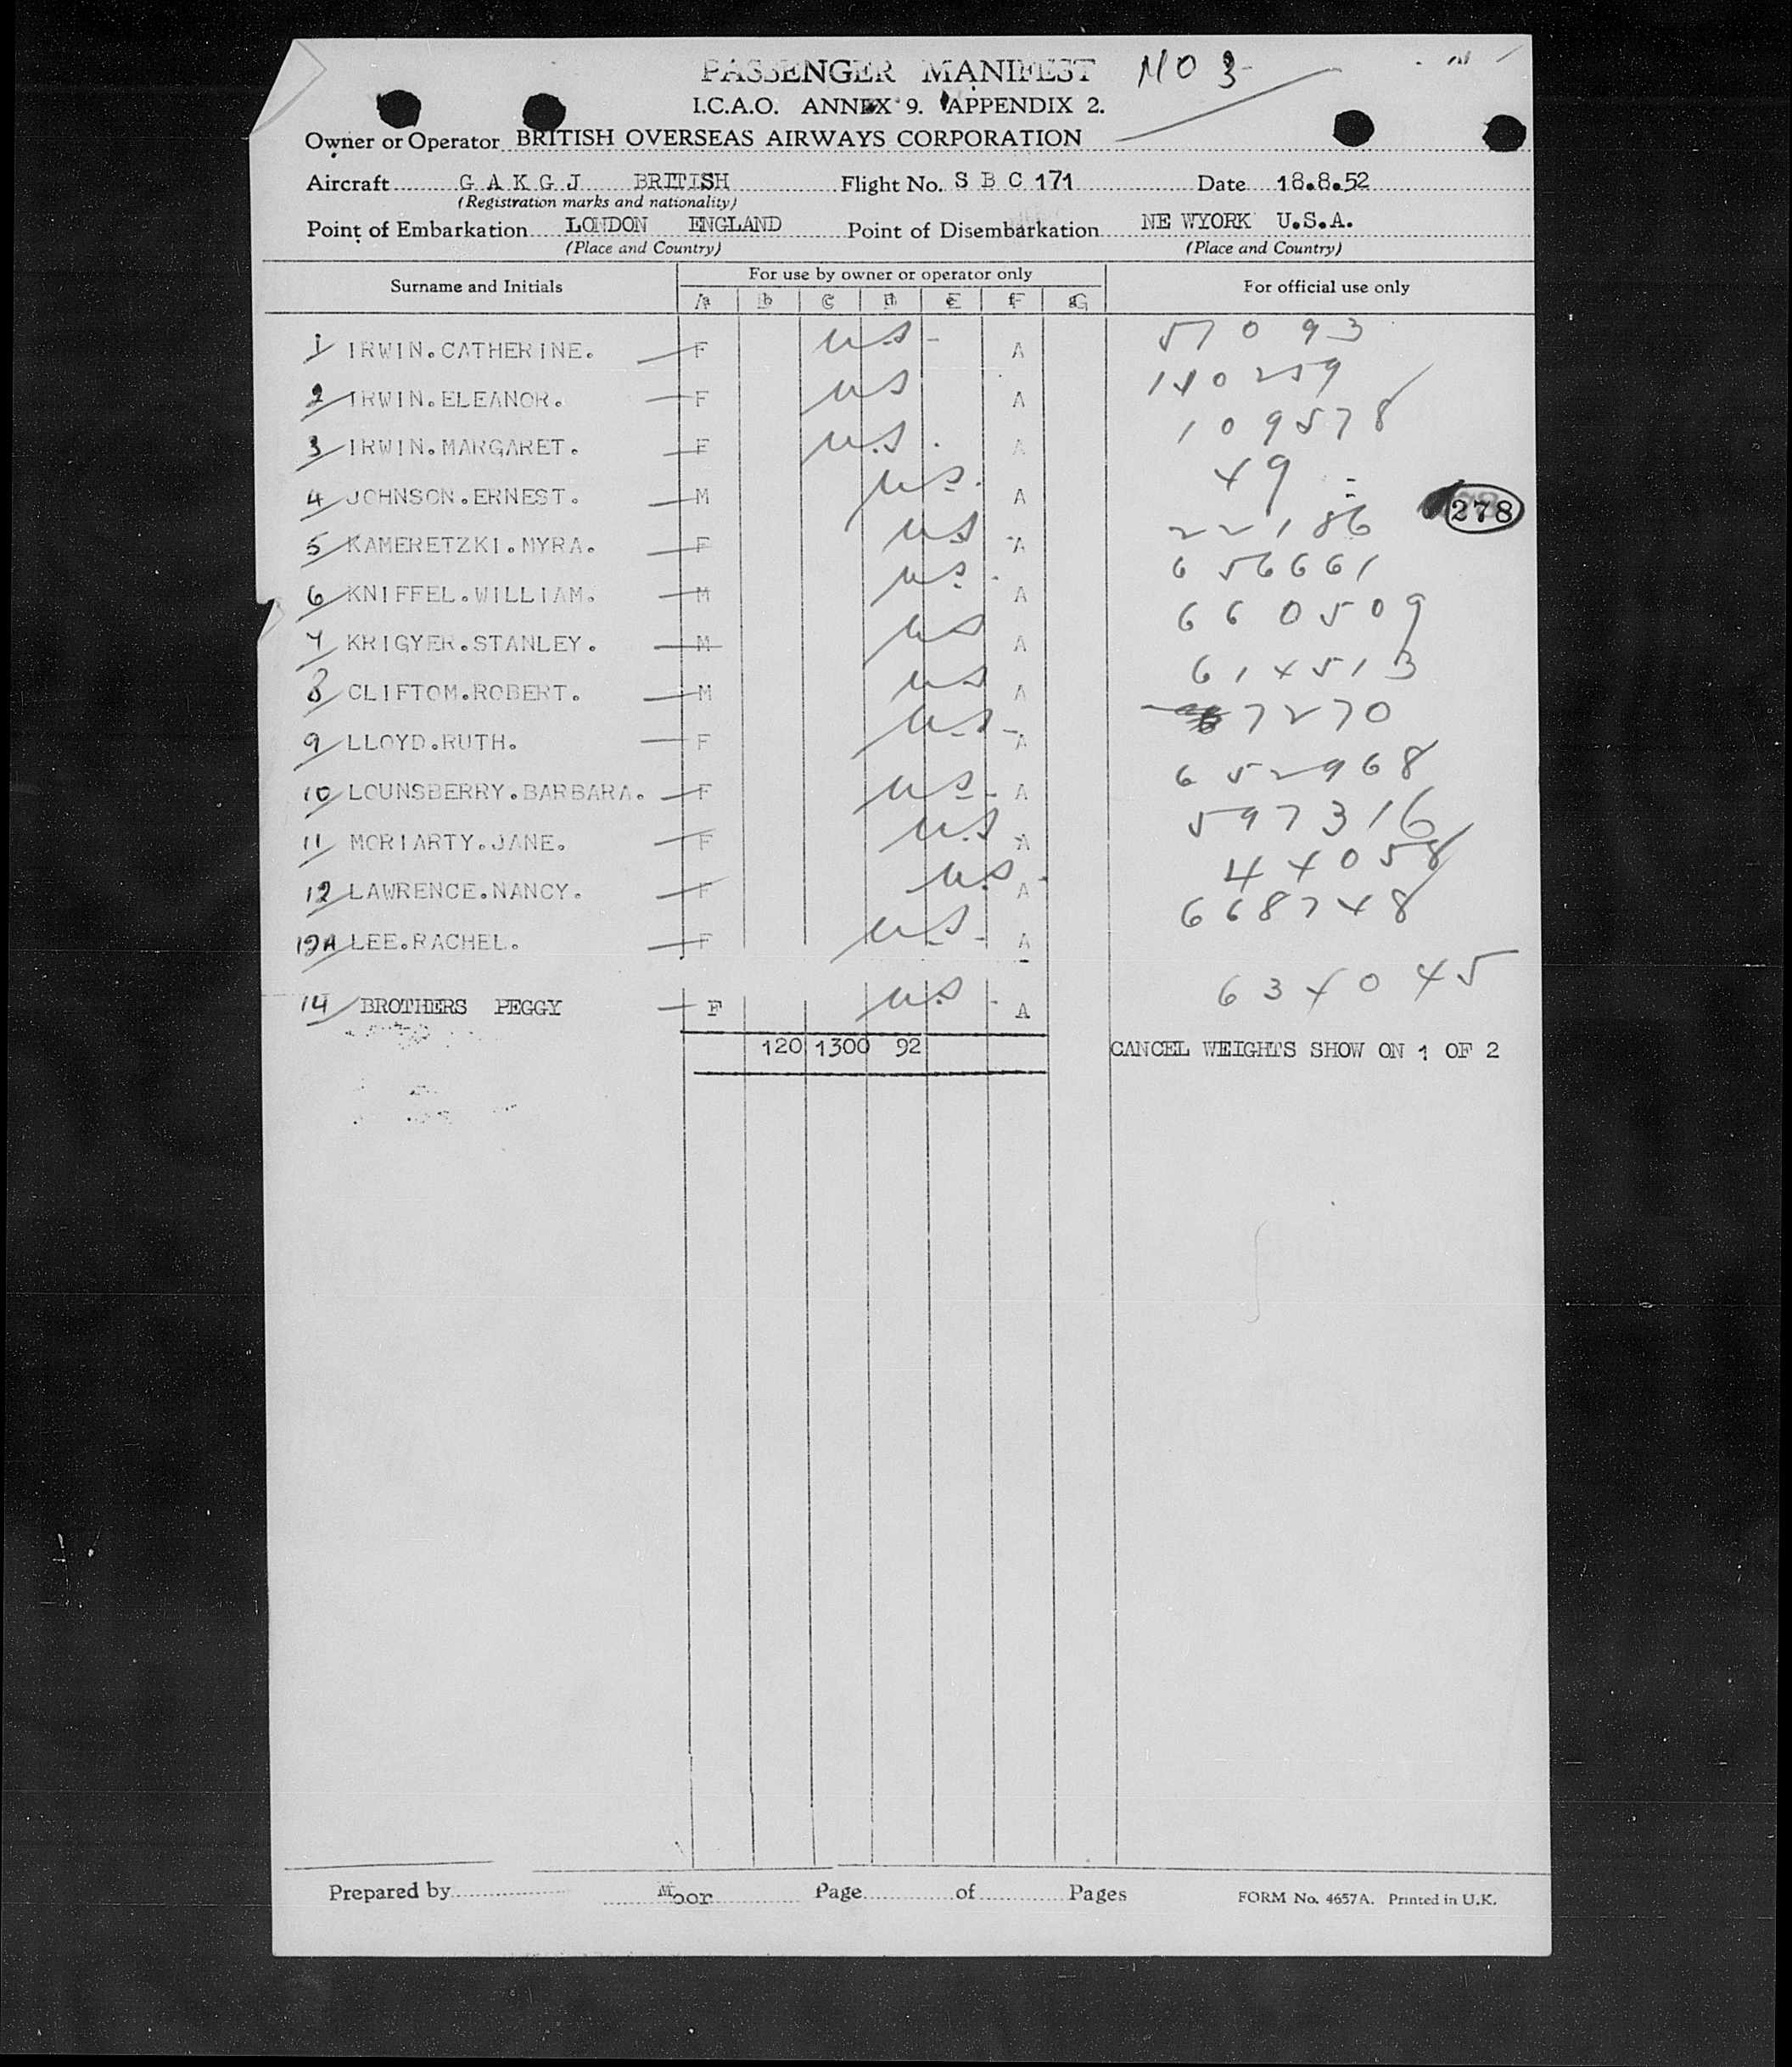 PASSENGER MANIFEST NO 3
I.C.A.O. ANNEX 9. APPENDIX 2.
Owner or Operator BRITISH OVERSEAS AIRWAYS CORPORATION
Aircraft G A K G J BRITISH Flight No. S B C 171 Date 18.8.52
(Registration marks and nationality)
Point of Embarkation LONDON ENGLAND Point of Disembarkation NE WYORK U.S.A.
(Place and Country) (Place and Country)
Surname and Initials For use by owner or operator only For official use only
A b C d E F G
1 IRWIN.CATHERINE. F U.S- A 57093
2 IRWIN.ELEANOR. F US A 140259
3 IRWIN.MARGARET. F U.S. A 109578
4 JOHNSON.ERNEST. M U.S. A 49
278
5 KAMERETZKI.MYRA. F US A 22186
6 KNIFFEL.WILLIAM. M U.S. A 656661
7 KRIGYER.STANLEY. M US A 660509
8 CLIFTOM.ROBERT. M US A 614513
9 LLOYD.RUTH. F U.S- A 67270
10 LOUNSBERRY.BARBARA. F U.S- A 652968
11 MORIARTY.JANE. F U.S A 597316
12 LAWRENCE.NANCY. F U.S. A 44058
12A LEE.RACHEL. F U.S- A 668748
14 BROTHERS PEGGY F U.S- A 634045
120 1300 92 CANCEL WEIGHTS SHOW ON 1 OF 2
Prepared by Moor Page of Pages FORM No. 4657A. Printed in U.K.